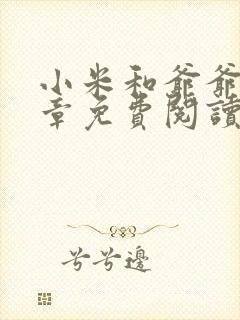 小米和爺爺
章免費閱讀
兮兮邊